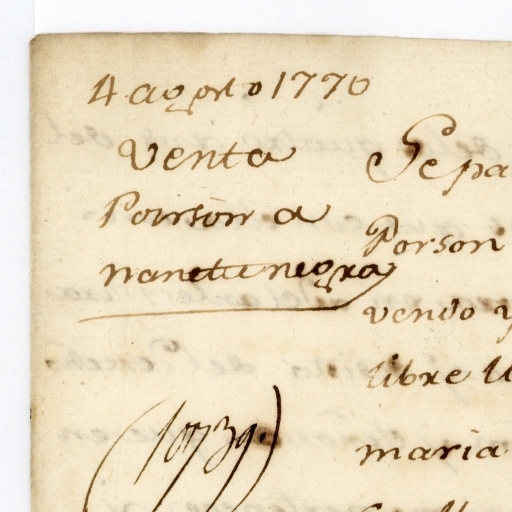 4 agosto 1770
Venta
Pourson a
nanette negra
(10739.)
Sepa
Porson
vendo y
libre U
maria